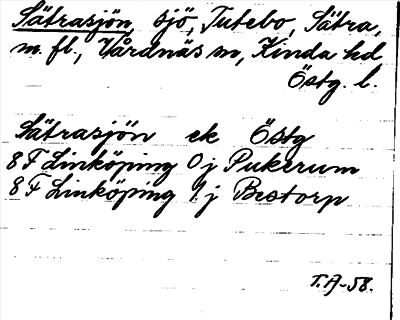 Sätrasjön, sjö, Tutebo, Sätra,
m. fl., Vårdnäs sn, Kinda hd
Östg. l.
Sätrasjön ek Östg
8 F Linköping 0 j Pukerum
8 F Linköping 1 j Bestorp
T.A-58.